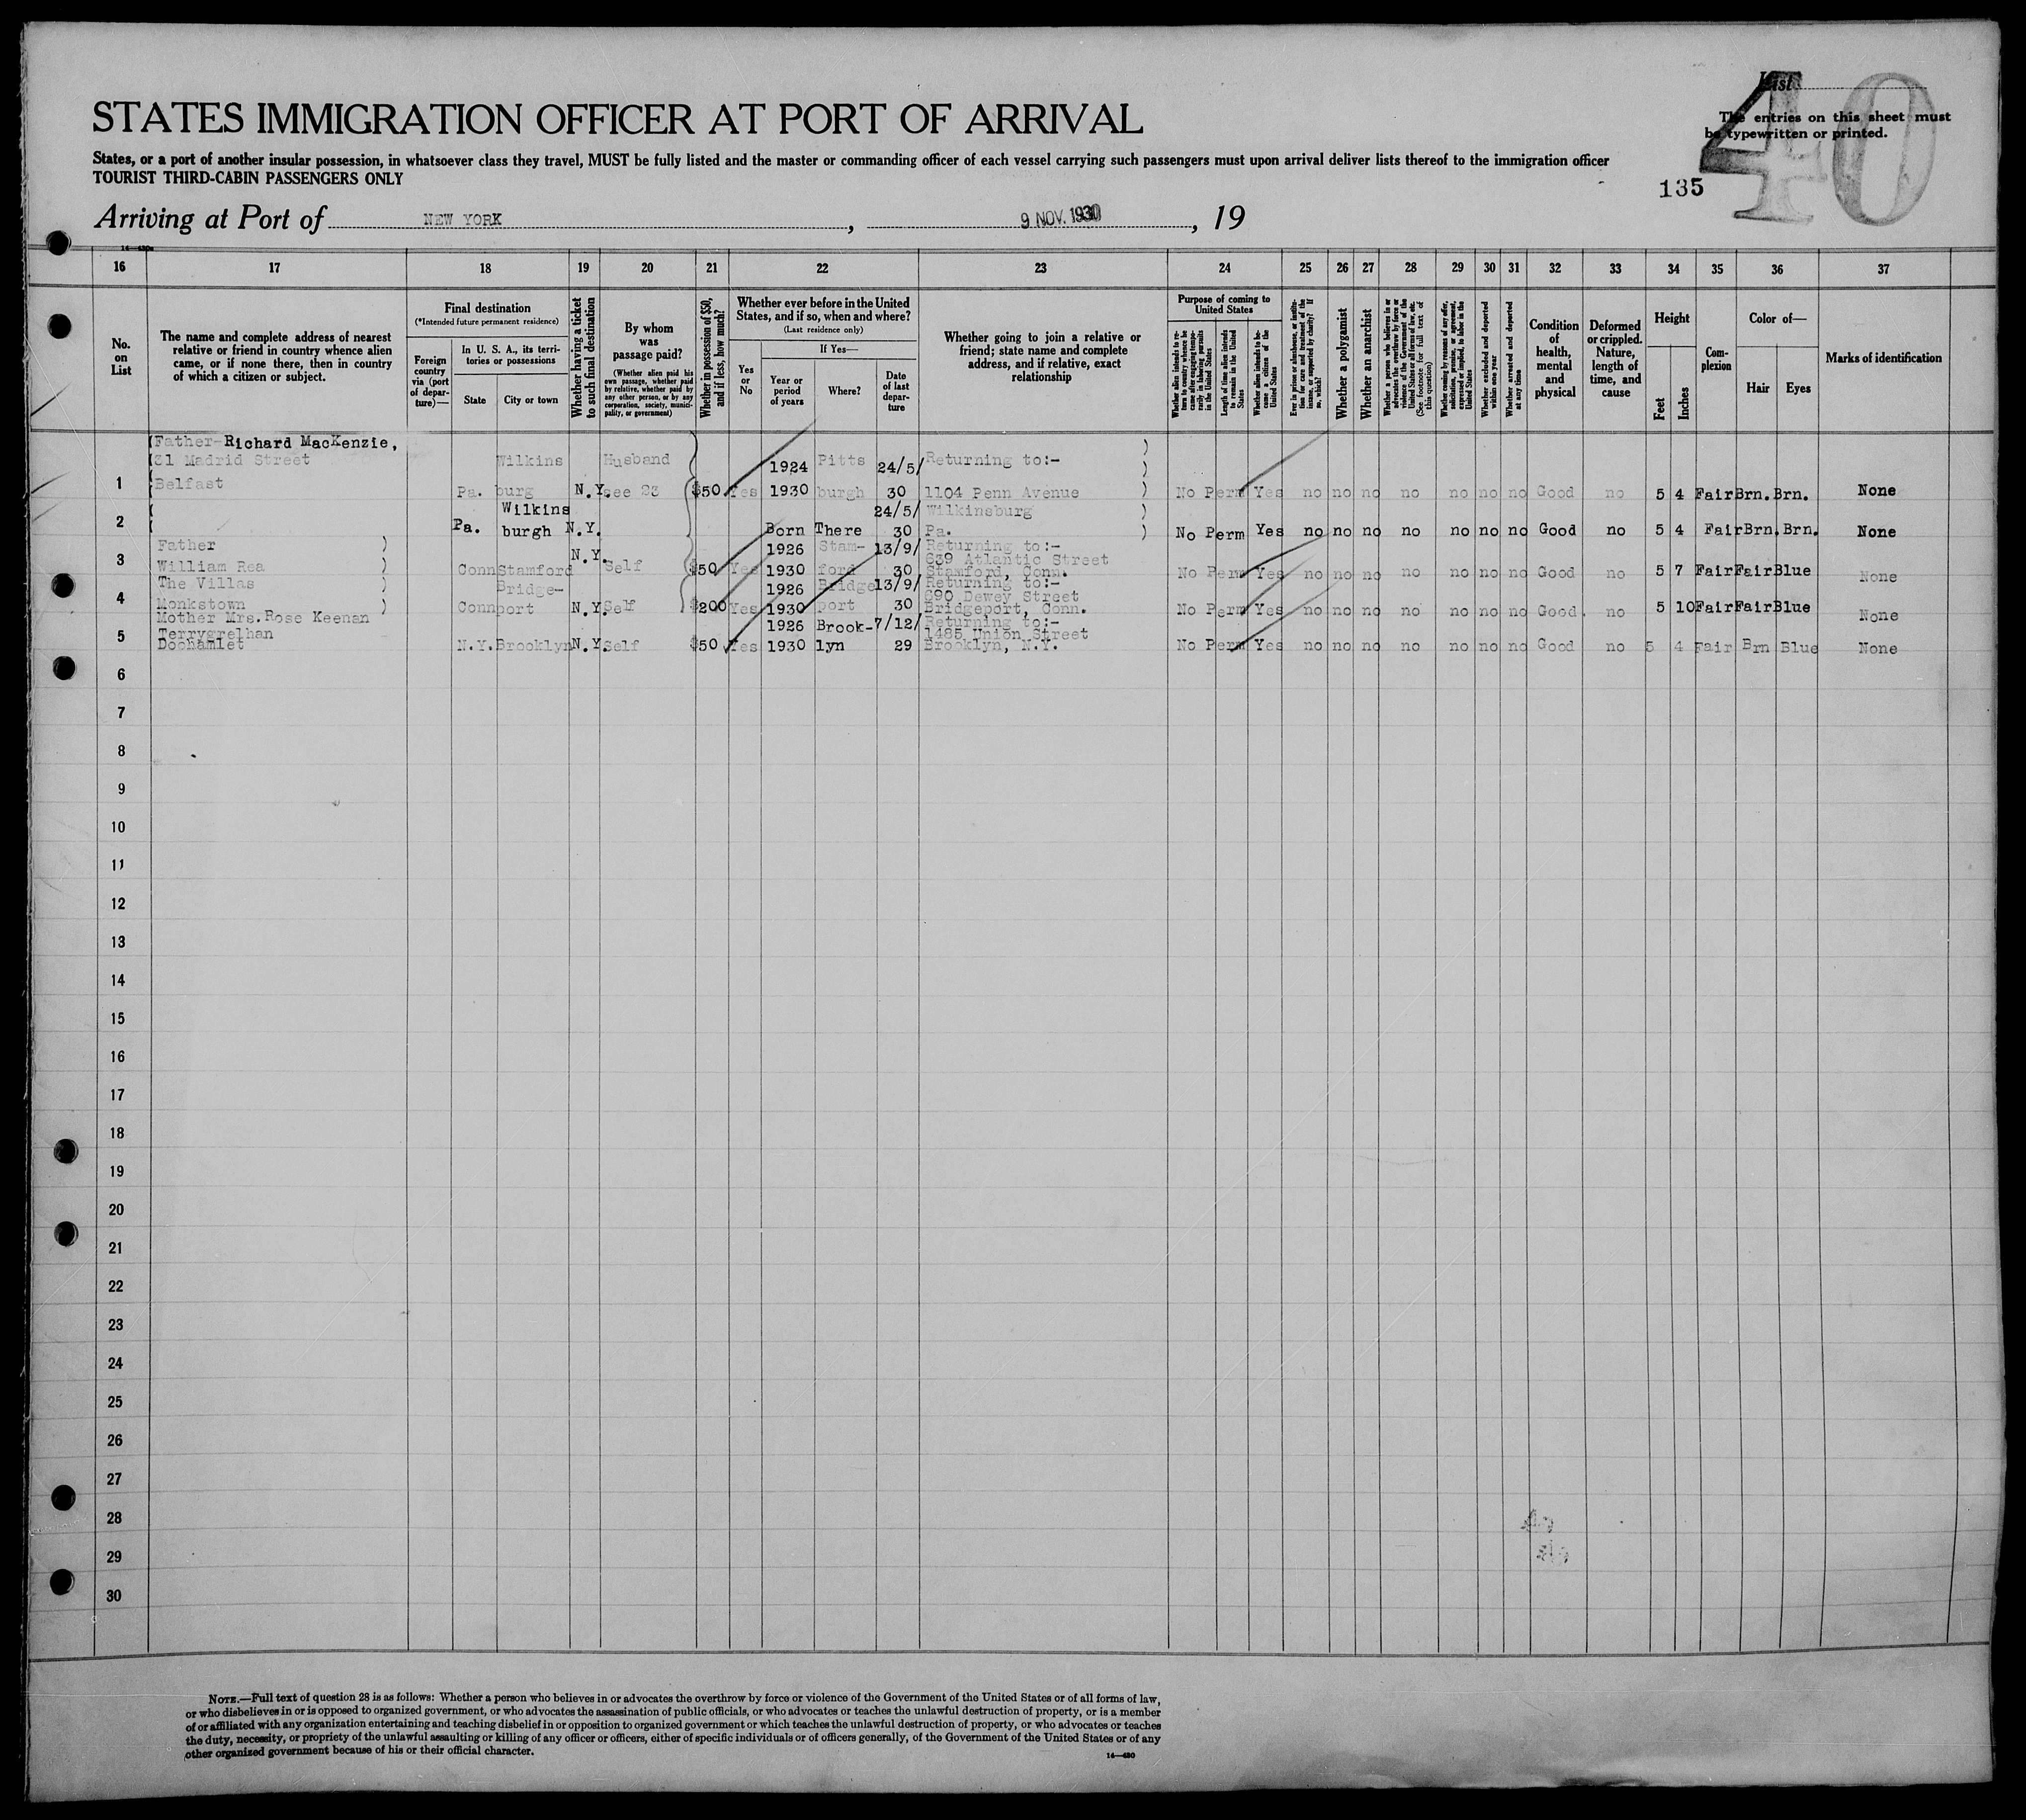 List
40
The entries on this sheet must
be typewritten or printed.
STATES IMMIGRATION OFFICER AT PORT OF ARRIVAL
States, or a port of another insular possession, in whatsoever class they travel, MUST be fully listed and the master or commanding officer of each vessel carrying such passengers must upon arrival deliver lists thereof to the immigration officer
TOURIST THIRD-CABIN PASSENGERS ONLY
135
Arriving at Port of NEW YORK , 9 NOV. 1930 , 19
16 17 18 19 20 21 22 23 24 25 26 27 28 29 30 31 32 33 34 35 36 37
No.
on
List
The name and complete address of nearest
relative or friend in country whence alien
came, or if none there, then in country
of which a citizen or subject.
Final destination
(*Intended future permanent residence)
Foreign
country
via (port
of depar-
ture)—
In U. S. A., its terri-
tories or possessions
State
City or town
Whether having a ticket
to such final destination
By whom
was
passage paid?
(Whether alien paid his
own passage, whether paid
by relative, whether paid by
any other person, or by any
corporation, society, munici-
pality, or government)
Whether in possession of $50,
and if less, how much?
Whether ever before in the United
States, and if so, when and where?
(Last residence only)
Yes
or
No
If Yes—
Year or
period
of years
Where?
Date
of last
depar-
ture
Whether going to join a relative or
friend; state name and complete
address, and if relative, exact
relationship
Purpose of coming to
United States
Whether alien intends to re-
turn to country whence he
came after engaging tempo-
rarily in laboring pursuits
in the United States
Length of time alien intends
to remain in the United
States
Whether alien intends to be-
come a citizen of the
United States
Ever in prison or almshouse, or institu-
tion for care and treatment of the
insane, or supported by charity? If
so, which?
Whether a polygamist
Whether an anarchist
Whether a person who believes in or
advocates the overthrow by force or
violence of the Government of the
United States or all forms of law, etc.
(See footnote for full text of
this question)
Whether coming by reasons of any offer,
solicitation, promise, or agreement,
expressed or implied, to labor in the
United States
Whether excluded and deported
within one year
Whether arrested and deported
at any time
Condition
of
health,
mental
and
physical
Deformed
or crippled.
Nature,
length of
time, and
cause
Height
Feet
Inches
Com-
plexion
Color of—
Hair Eyes
Marks of identification
(Father-Richard MacKenzie,
(31 Madrid Street Wilkins Husband 1924 Pitts 24/5/ Returning to:-
1 Belfast Pa. burg N.Y. see 23 $50 Yes 1930 burgh 30 1104 Penn Avenue No Perm Yes no no no no no no no Good no 5 4 Fair Brn. Brn. None
Wilkins 24/5/ Wilkinsburg
2 Pa. burgh N.Y. Born There 30 Pa. No Perm Yes no no no no no no no Good no 5 4 Fair Brn. Brn. None
Father ) N.Y. 1926 Stam- 13/9/ Returning to:-
639 Atlantic Street
3 William Rea ) Conn Stamford Self $50 Yes 1930 ford 30 Stamford, Conn. No Perm Yes no no no no no no no Good no 5 7 Fair Fair Blue None
The Villas ) Bridge- 1926 Bridge 13/9/ Returning to:-
690 Dewey Street
4 Monkstown ) Conn port N.Y. Self $200 Yes 1930 port 30 Bridgeport, Conn. No Perm Yes no no no no no no no Good no 5 10 Fair Fair Blue None
Mother Mrs.Rose Keenan 1926 Brook- 7/12/ Returning to:-
Terrygrelhan 1485 Union Street
5 Doohamlet N.Y. Brooklyn N.Y. Self $50 Yes 1930 lyn 29 Brooklyn, N.Y. No Perm Yes no no no no no no no Good no 5 4 Fair Brn Blue None
6
7
8
9
10
11
12
13
14
15
16
17
18
19
20
21
22
23
24
25
26
27
28
29
30
NOTE.—Full text of question 28 is as follows: Whether a person who believes in or advocates the overthrow by force or violence of the Government of the United States or of all forms of law,
or who disbelieves in or is opposed to organized government, or who advocates the assassination of public officials, or who advocates or teaches the unlawful destruction of property, or is a member
of or affiliated with any organization entertaining and teaching disbelief in or opposition to organized government or which teaches the unlawful destruction of property, or who advocates or teaches
the duty, necessity, or propriety of the unlawful assaulting or killing of any officer or officers, either of specific individuals or of officers generally, of the Government of the United States or of any
other organized government because of his or their official character.
14—430